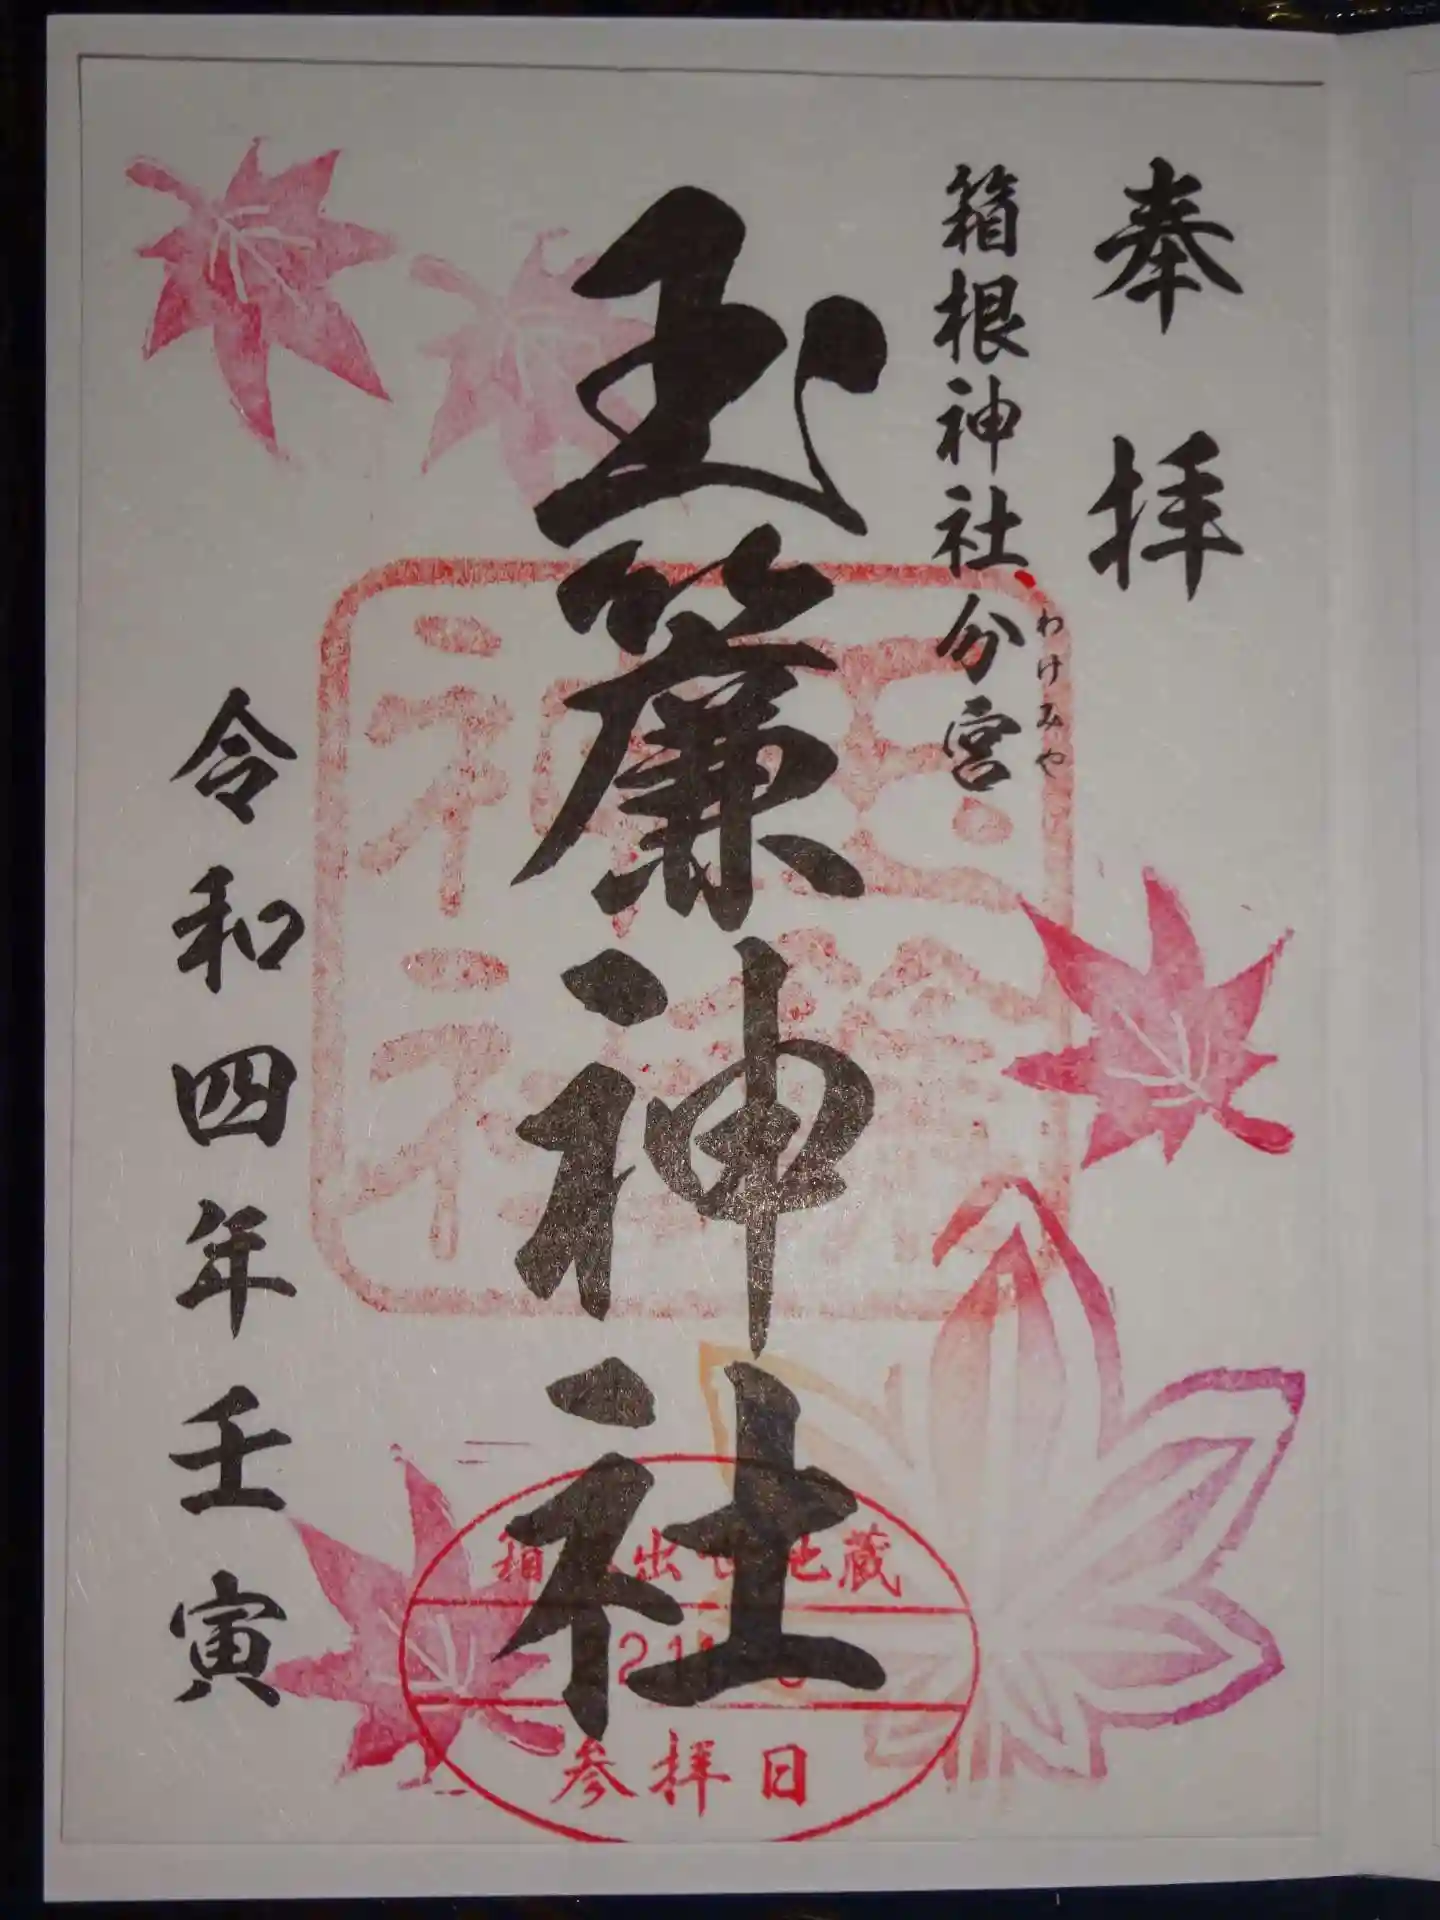 奉拝
箱根神社分宮
わけみや
玉簾神社
令和四年壬寅
玉簾
神社
参拝日